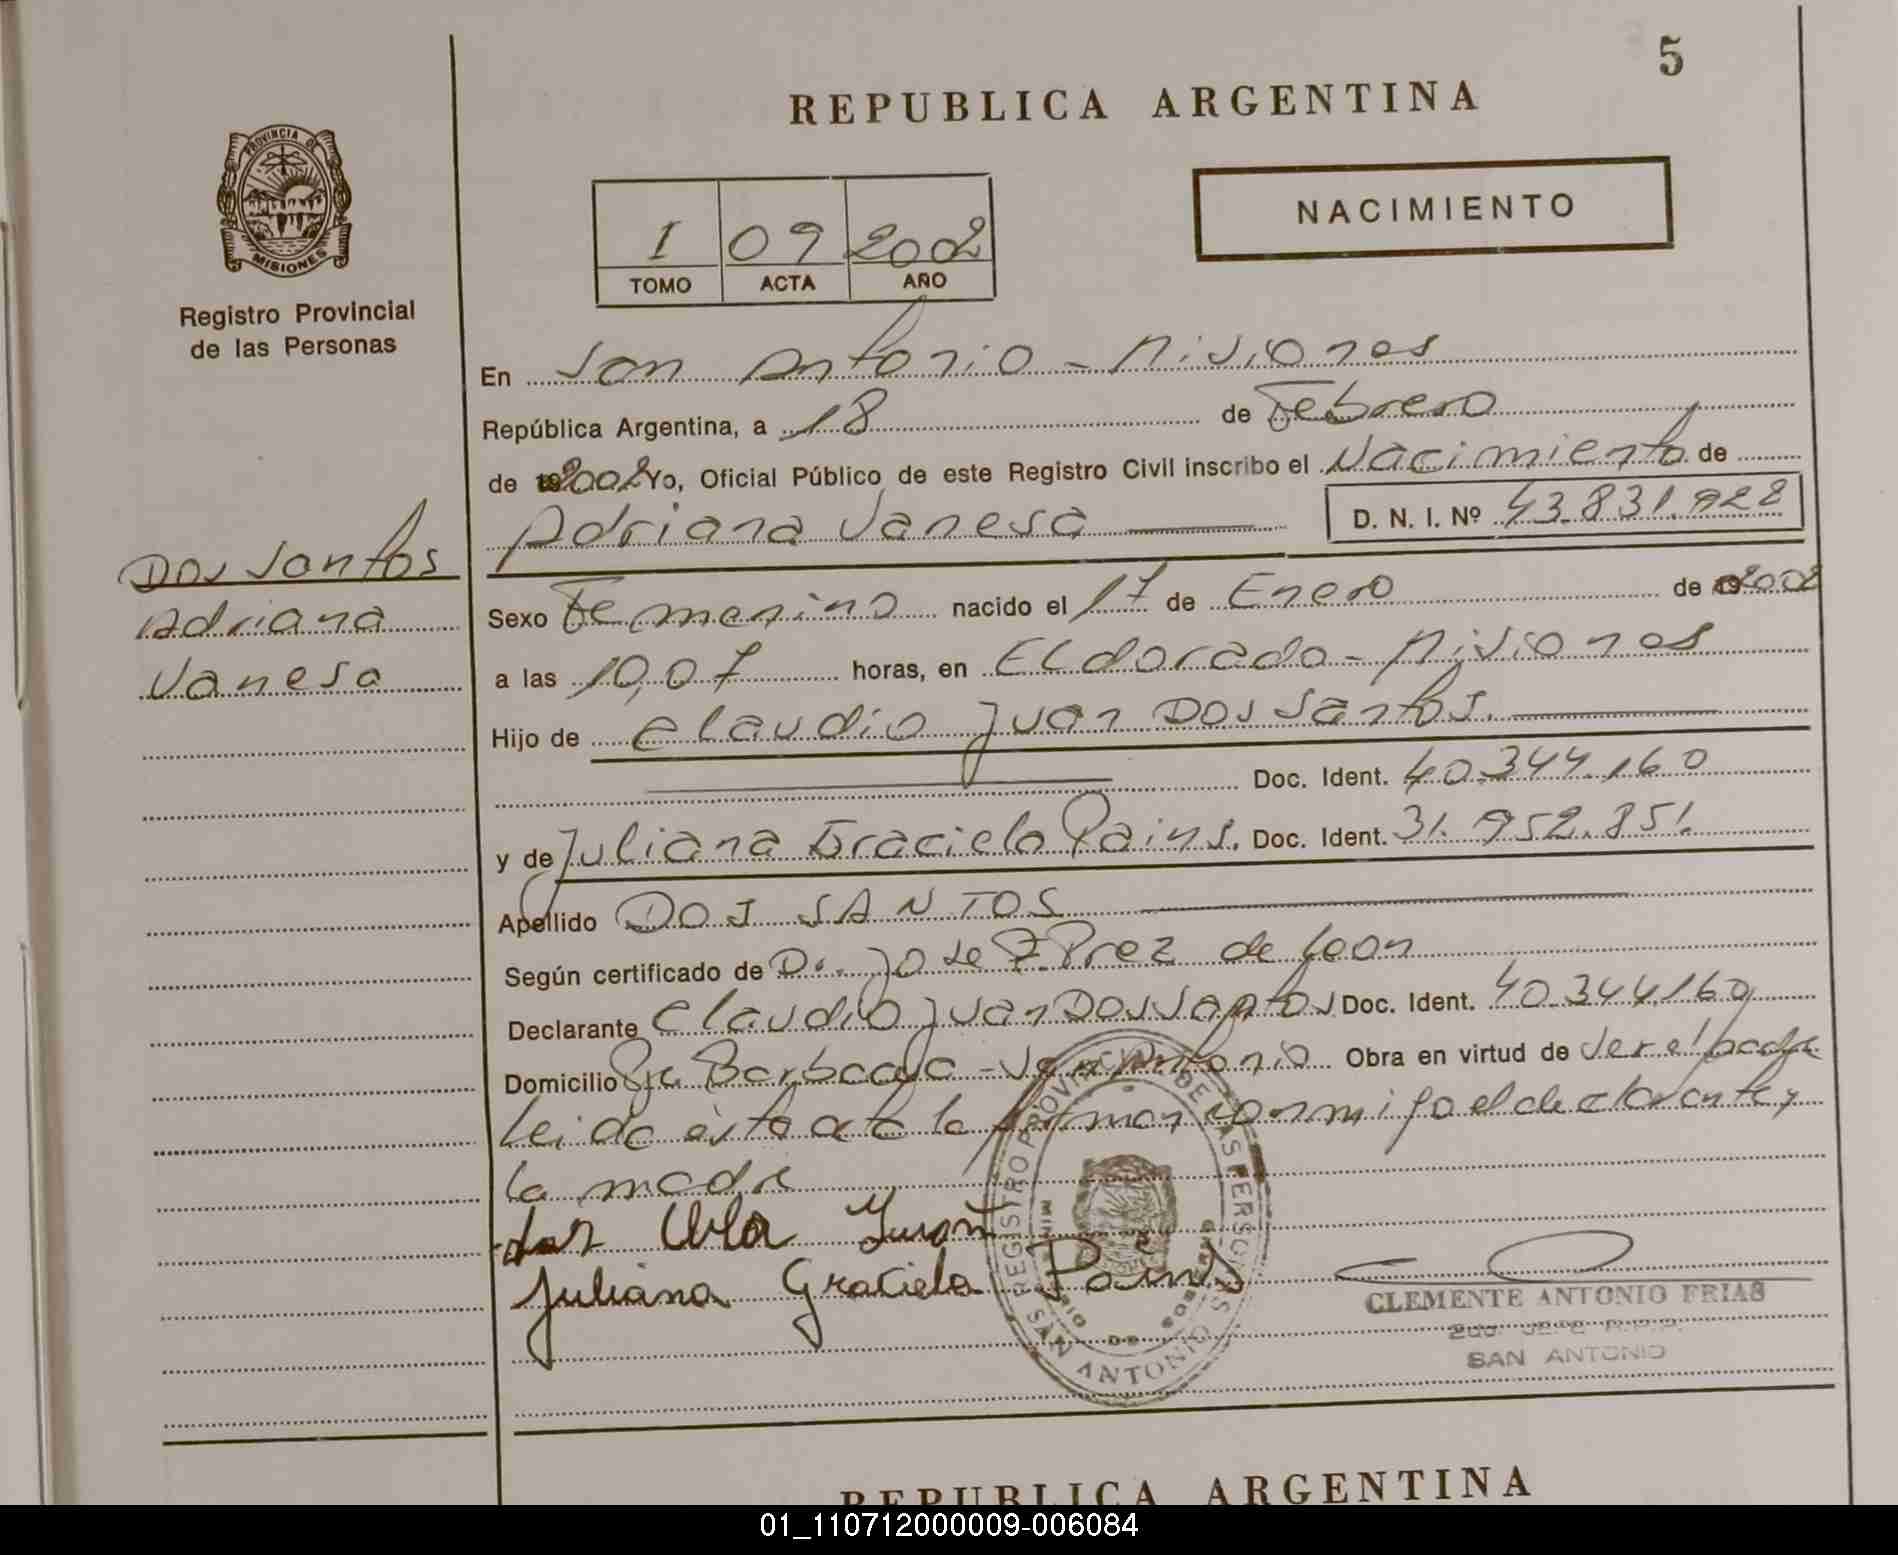 5
REPUBLICA ARGENTINA
PROVINCIA DE
MISIONES
Registro Provincial
de las Personas
NACIMIENTO
I 09 2002
TOMO ACTA AÑO
En San Antonio - Misiones
República Argentina, a 18 de Febrero
de 2002 Yo, Oficial Público de este Registro Civil inscribo el Nacimiento de
Adriana Vanesa D. N. I. Nº 43.831.922
Dos Santos
Adriana
Vanesa
Sexo Femenino nacido el 17 de Enero de 2002
a las 10,07 horas, en Eldorado - Misiones
Hijo de Claudio Juan Dos Santos.
Doc. Ident. 40.344.160
y de Juliana Graciela Pains. Doc. Ident. 31.952.851.
Apellido DOS SANTOS
Según certificado de Dr. Jose Prez de Leon
Declarante Claudio Juan Dos Santos Doc. Ident. 40.344.160
Domicilio - San Antonio Obra en virtud de ser el padre
Leida esta acta la firman conmigo el declarante y
la madre
Juan
Juliana Graciela Pains
REGISTRO PROVINCIAL DE LAS PERSONAS
SAN ANTONIO
CLEMENTE ANTONIO FRIAS
SAN ANTONIO
REPUBLICA ARGENTINA
01_110712000009-006084